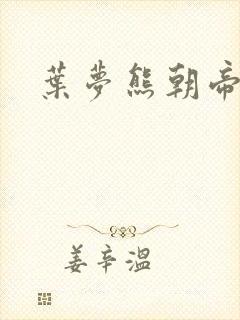 葉夢熊朝帝
姜辛溫